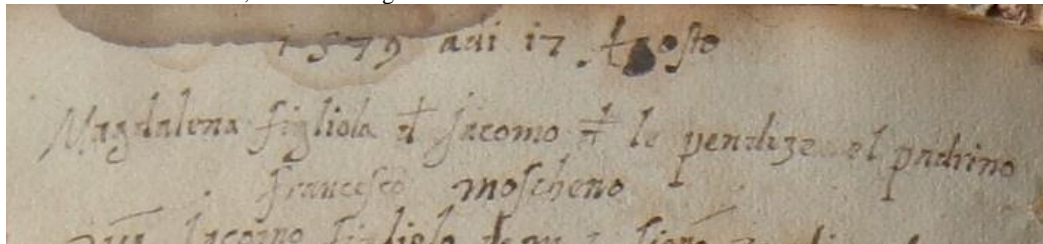 1579 adi 17 Agosto
Magdalena figliola d Jacomo d le pendize el padrino
francesco moscheno
Jacomo figliola